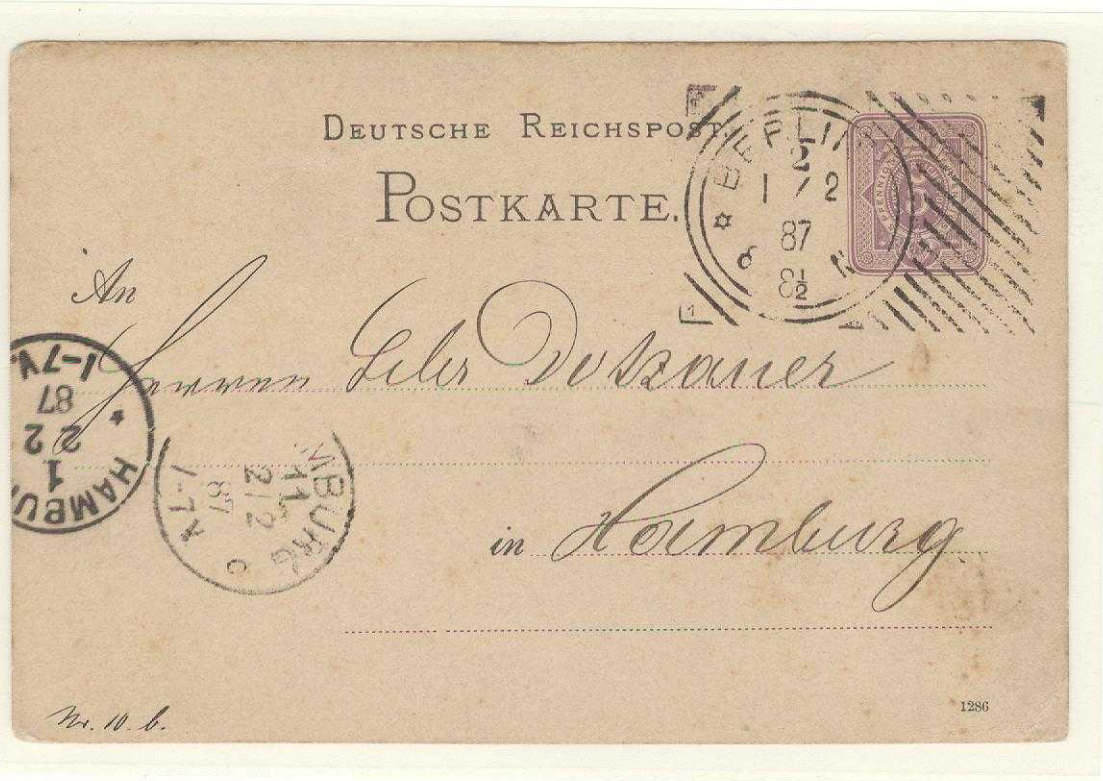 DEUTSCHE REICHSPOST.
POSTKARTE.
BERLIN
2
1 / 2
87
8½
N
An
Herren Gebr Dotzauer
in Hamburg
HAMBU
1
2 2
87
1-7V.
MBURG
11
2/2
87
1-7 A
C
Nr. 10. b.
1286